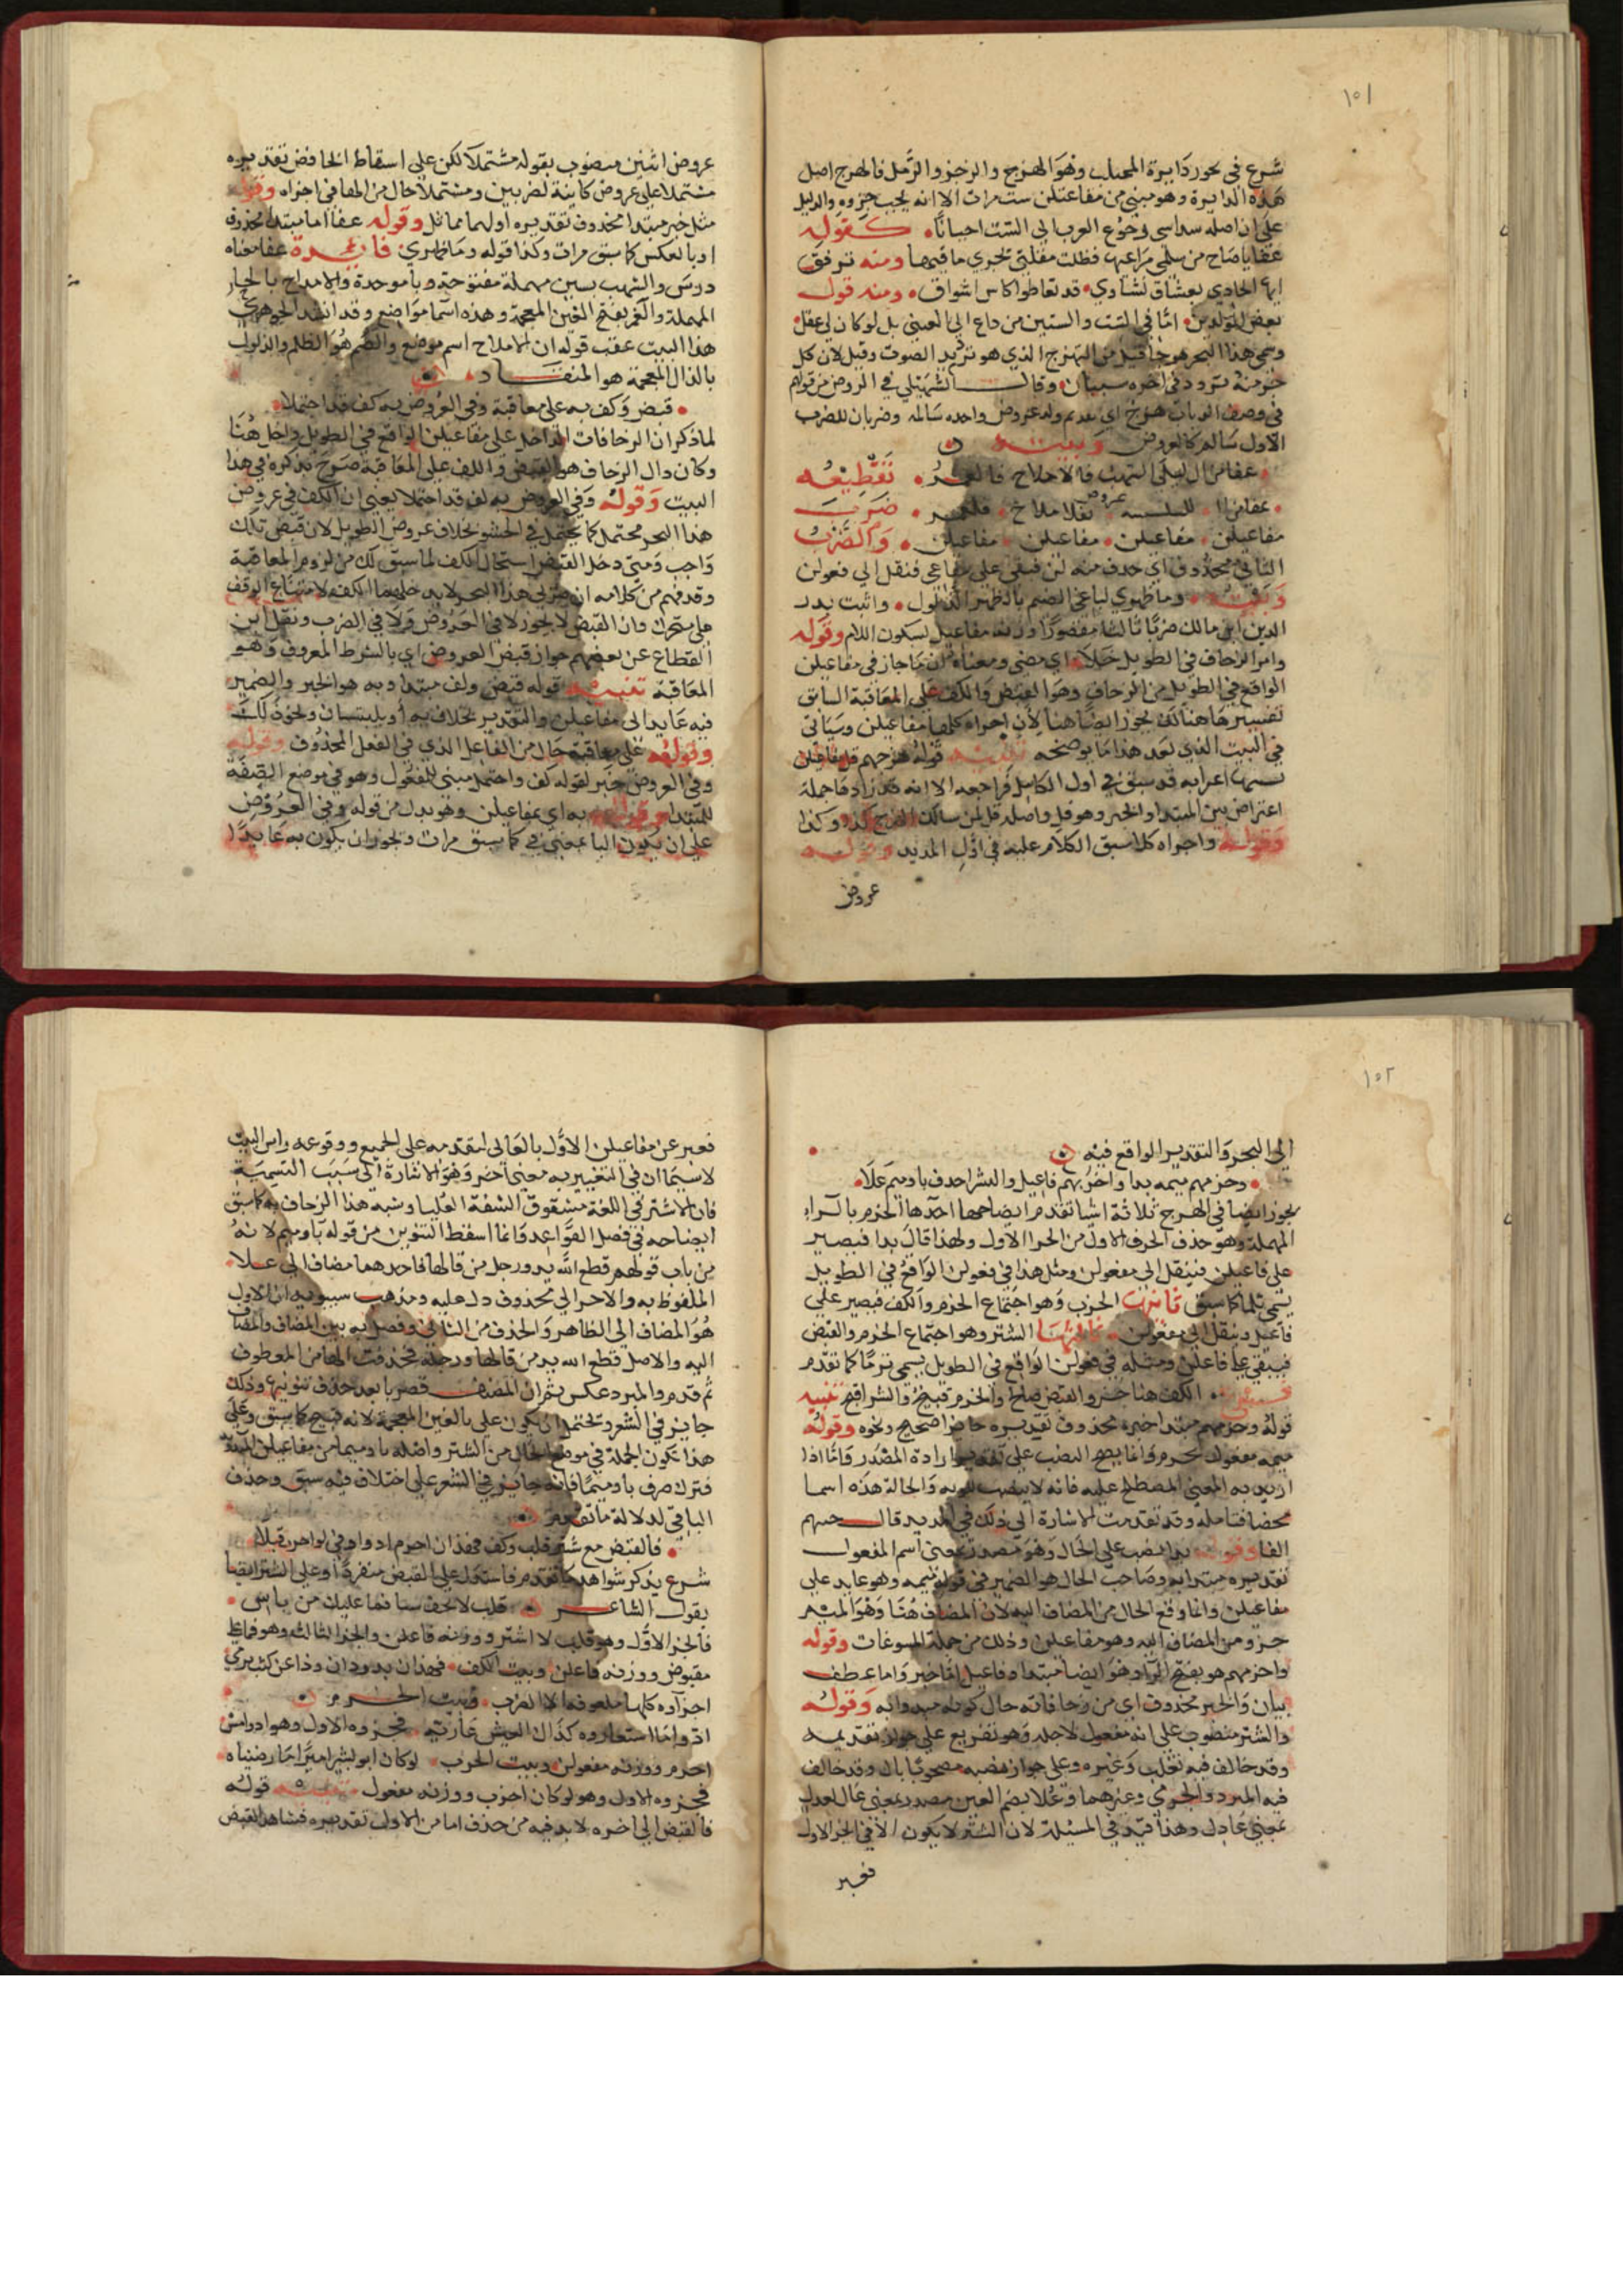 ١٥١
شرع في بحور دايرة المجتلب وهو الهزج والرجز والرمل فالهزج اصل
هذه الدايرة وهو مبني من مفاعيلن ست مرات الا انه يجب جزوه والدليل
على ان اصله سداسي رجوع العرب الى الست احيانا كقوله
عفا يا صاح من سلمى مراعيها فظلت مقلتي تجري ماقيها ومنه ترفق
ايها الحادي بعشاق نشاوي قد تعاطوا كاس اشواق ومنه قول
بعض المولدين اما في الست والستين من داع الى العبنى بل لو كان لي عقل
وسمي هذا البحر هزجا قيل من التهزج الذي هو تزيد الصوت وقيل لان كل
جز منه يتردد في اخره سببان وقال السهيلي في الروض من قولهم
في وصف الذباب هزج اي يقدم وله عروض واحده سالمه وضربان للضرب
الاول سالم كالعروض وبيته
عفا من ال ليلى السهب فالاملاح فالغمر تقطيعه
عفا من اا لليلسه عروض بفلا ملاح فلغمر ضرب
مفاعيلن مفاعيلن مفاعيلن مفاعيلن والضرب
الثاني محذوف اي حذف منه لن فبقي على مفاعي فنقل الى فعولن
وبيته وما ظهري لباغي الضيم بالظهر الذلول واثبت بدر
الدين ابن مالك ضربا ثالثا مقصورا وزنه مفاعيل بسكون اللام وقوله
وامر الزحاف في الطويل خلا اي مضى ومعناه ان ما جاز في مفاعيلن
الواقع في الطويل من الزحاف وهو القبض والكف على المعاقبة السابق
تفسيرها هنالك يجوز ايضا هنا لان اجزاه كلها مفاعيلن وسياتي
في البيت الذي بعد هذا ما يوضحه تنبيه قوله هزجهم قل مفاعلن
اعرابه قد سبق في اول الكامل فراجعه الا انه قد زاد هنا جملة
اعتراض بين المبتدا والخبر وهو قل واصله قل لمن سالك الهزج كذا وكذا
وقوله واجزاه كلا سبق الكلام عليه في اول المديد وقوله
عروض
عروض اثنين منصوب بقوله مشتملا لكن على اسقاط الخافض تقديره
مشتملا على عروض كاينة لضربين ومشتملا حال من الها في اجزاه وقوله
مثل خبر مبتدا محذوف تقديره اولهما مماثل وقوله عفا اما مبتدا محذوف
او بالعكس كما سبق مرات وكذا قوله وما ظهري فايدة عفا معناه
درس والسهب بسين مهملة مفتوحة وبا موحدة والاملاح بالحا
المهملة والغمر بفتح الغين المعجمة وهذه اسما مواضع وقد انشد الجوهري
هذا البيت عقب قوله ان الاملاح اسم موضع والضيم هو الظلم والذلول
بالذال المعجمة هو المنقاد
قبض وكف به على معاقبة وفي العروض به كف قد احتملا
لما ذكر ان الزحافات الداخل على مفاعيلن الواقع في الطويل داخل هنا
وكان دال الزحاف هو القبض والكف على المعاقبة صرح بذكره في هذا
البيت وقوله وفي العروض به كف قد احتملا يعني ان الكف في عروض
هذا البحر محتمل كما يحتمل في الحشو بخلاف عروض الطويل لان قبض تلك
واجب ومتى دخل القبض استحال الكف لما سبق لك من لزوم المعاقبة
وقد فهم من كلامه ان ضربي هذا البحر لا يدخلهما الكف لامتناع الوقف
على متحرك وان القبض لا يجوز لا في العروض ولا في الضرب ونقل ابن
القطاع عن بعضهم جواز قبض العروض اي بالشرط المعروف وهو
المعاقبة تنبيه قوله قبض وكف مبتدا وبه هو الخبر والضمير
فيه عايد الى مفاعيلن والتقدير بخلاف به او يلتبسان ونحو ذلك
وقوله على معاقبة حال من الفاعل الذي في الفعل المحذوف وقوله
وفي العروض خبر لقوله كف واحتمل مبني للمفعول وهو في موضع الصفة
للمبتدا وقوله به اي بمفاعيلن وهو بدل من قوله وفي العروض
على ان يكون البا بمعنى في كما سبق مرات ويجوز ان يكون به عايدا
١٥٢
الى البحر والتقدير الواقع فيه
وخرمهم ميمه بدا واخربهم فاعيل والشتر احذف يا وميم علا
يجوز ايضا في الهزج ثلاثة اشيا تقدم ايضاحها احدها الخرم بالراء
المهملة وهو حذف الحرف الاول من الجزا الاول ولهذا قال بدا فيصير
على فاعيلن فينقل الى مفعولن ومثل هذا في فعولن الواقع في الطويل
يسمى ثلما كما سبق ثانيها الخرب وهو اجتماع الخرم والكف فيصير على
فاعيل وينقل الى مفعول ثالثها الشتر وهو اجتماع الخرم والقبض
فيبقى على فاعلن ومثله في فعولن الواقع في الطويل يسمى ثرما كما تقدم
الكف هنا حسن والقبض صالح والخرم قبيح والشتر اقبح تنبيه
قوله وخرمهم مبتدا خبره محذوف تقديره جايز او صحيح ونحوه وقوله
ميمه مفعول لخرم وانما يصح النصب على تقدير ارادة المصدر فاما اذا
اريد به المعنى المصطلح عليه فانه لا ينصب المفعول به والحالة هذه اسما
محضا فتامله وقد تقدمت الاشارة الى ذلك في المديد قال حبنهم
الفا وقوله بدا نصب على الحال وهو مصدر بمعنى اسم المفعول
تقديره مبتدا به وصاحب الحال هو الضمير في قوله ميمه وهو عايد على
مفاعيلن وانما وقع الحال من المضاف اليه لان المضاف هنا وهو الميم
جزو من المضاف اليه وهو مفاعيلن وذلك من جملة المسوغات وقوله
واخربهم هو بفتح الراء وهو ايضا مبتدا وفاعيل اما خبر واما عطف
بيان والخبر محذوف اي من زحافاته حال كونه مبدوا به وقوله
والشتر منصوب على انه مفعول لاجله وهو تفريع على جواز تقديمه
وقد خالف فيه ثعلب وغيره وعلى جواز نصبه مصحوبا بال وقد خالف
فيه المبرد والجرمي وغيرهما وعلا بضم العين مصدر بمعنى عال كعدل
بمعنى عادل وهذا قيد في المسيلة لان الشتر لا يكون الا في الجز الاول
فعبر
فعبر عن مفاعيلن الاول بالعالي لتقدمه على الجميع ووقوعه راس البيت
لا سيما ان في التعبير به معنى اخر وهو الاشارة الى سبب التسمية
فان الاشتر في اللغة مشقوق الشفة العليا وشبه هذا الزحاف به كما سبق
ايضاحه في فصل القواعد وانما اسقط التنوين من قوله يا وميم لانه
من باب قولهم قطع الله يد ورجل من قالها فاحدهما مضاف الى علا
الملفوظ به والاخر الى محذوف دل عليه ومذهب سيبويه ان الاول
هو المضاف الى الظاهر والحذف من الثاني وفصل به بين المضاف والمضاف
اليه والاصل قطع الله يد من قالها ورجله فحذفت الها من المعطوف
ثم قدم والمبرد عكس ثم ان المصنف قصر يا بعد حذف تنوينه وذلك
جايز في الشعر ويحتمل ان يكون على بالغين المعجمة لانه قبيح كما سبق وعلى
هذا تكون الجملة في موضع الحال من الشتر واصله يا وميما من مفاعيلن
فترك صرف يا وميما فانه جايز في الشعر على اختلاف فيه سبق وحذف
الباقي لدلالة ما تقدم
فالقبض مع شتر قلب وكف فهذان اخرم ادوا وفي لو اخرب قبلا
شرع يذكر شواهد ما تقدم فاستدل على القبض منفردا وعلى الشتر ايضا
بقول الشاعر قلت لا تخف شيا فما عليك من باس
فالجز الاول وهو قلت لا اشتر ووزنه فاعلن والجز الثالث وهو فما علي
مقبوض ووزنه مفاعلن وبيت الكف فهذان يذودان وذا عن كثب يرمي
اجزاوه كلها مكفوفة الا الضرب وبيت الخرم
ادوا ما استعاروه كذاك العيش عاريه فجزوه الاول وهو ادوامس
اخرم ووزنه مفعولن وبيت الخرب لو كان ابو بشر اميرا ما رضيناه
فجزوه الاول وهو لو كان اخرب ووزنه مفعول تنبيه قوله
فالقبض الى اخره لا بد فيه من حذف اما من الاول تقديره فشاهد القبض